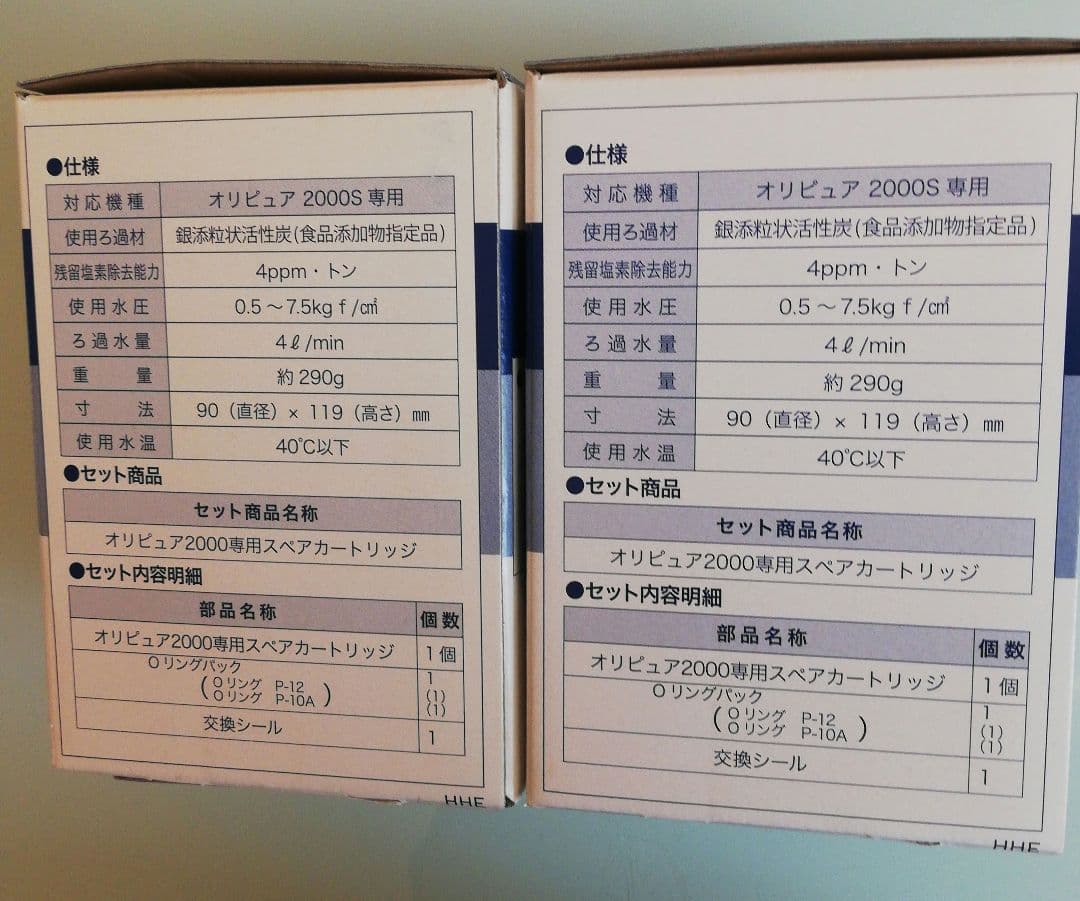 ●仕様
対応機種 オリピュア 2000S 専用
使用ろ過材 銀添粒状活性炭(食品添加物指定品)
残留塩素除去能力 4ppm・トン
使用水圧 0.5～7.5kgf/㎠
ろ過水量 4ℓ/min
重量 約290g
寸法 90（直径）× 119（高さ）㎜
使用水温 40℃以下
●セット商品
セット商品名称
オリピュア2000専用スペアカートリッジ
●セット内容明細
部品名称 個数
オリピュア2000専用スペアカートリッジ 1個
Oリングパック 1
(Oリング P-12 (1)
Oリング P-10A) (1)
交換シール 1
●仕様
対応機種 オリピュア 2000S 専用
使用ろ過材 銀添粒状活性炭(食品添加物指定品)
残留塩素除去能力 4ppm・トン
使用水圧 0.5～7.5kgf/㎠
ろ過水量 4ℓ/min
重量 約290g
寸法 90（直径）× 119（高さ）㎜
使用水温 40℃以下
●セット商品
セット商品名称
オリピュア2000専用スペアカートリッジ
●セット内容明細
部品名称 個数
オリピュア2000専用スペアカートリッジ 1個
Oリングパック 1
(Oリング P-12 (1)
Oリング P-10A) (1)
交換シール 1